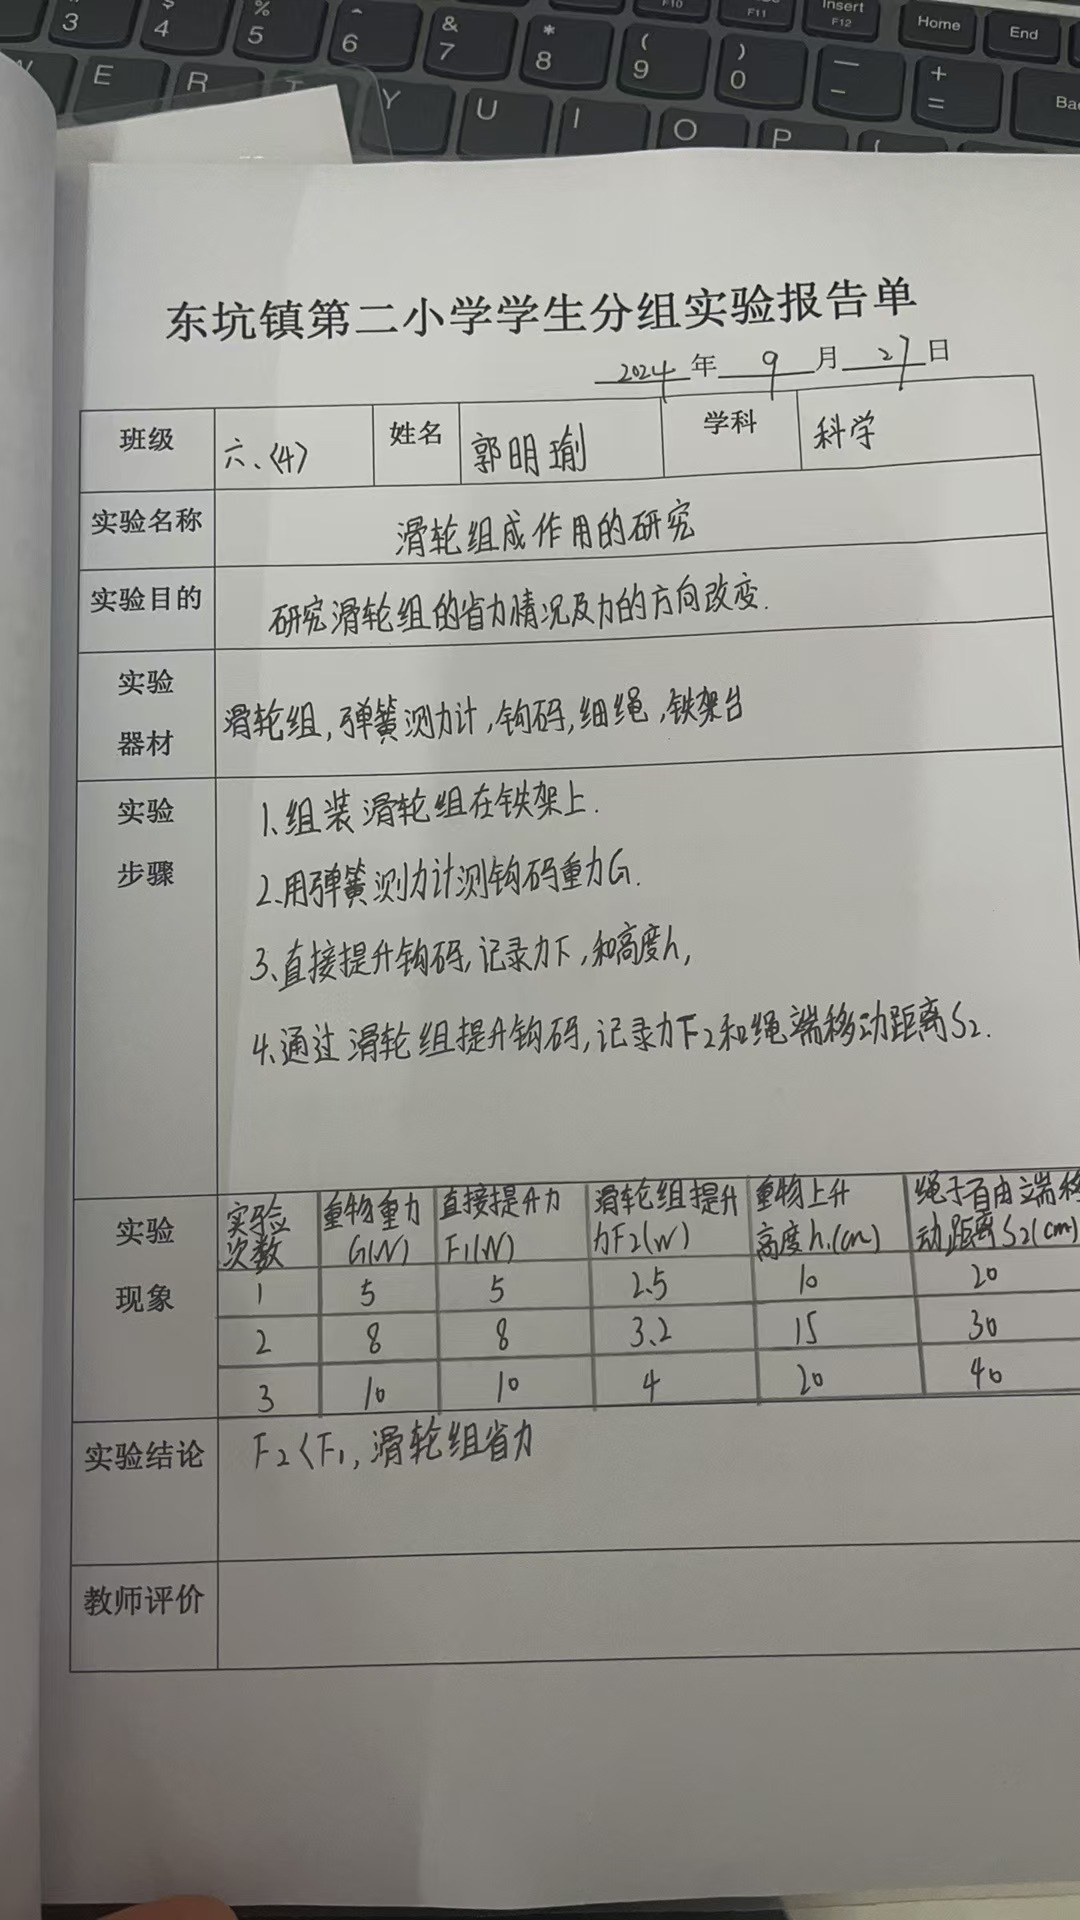 3 4 % 5 ^ 6 & 7 * 8 ( 9 ) 0 — - + =
F10 F11 Insert F12 Home End
E R Y U I O P Ba
东坑镇第二小学学生分组实验报告单
2024年9月27日
班级 六、(4) 姓名 郭明瑜 学科 科学
实验名称 滑轮组成作用的研究
实验目的 研究滑轮组的省力情况及力的方向改变.
实验器材 滑轮组,弹簧测力计,钩码,细绳,铁架台
实验步骤
1.组装滑轮组在铁架上.
2.用弹簧测力计测钩码重力G.
3、直接提升钩码,记录力F,和高度h,
4.通过滑轮组提升钩码,记录力F2和绳端移动距离S2.
实验现象
实验次数 重物重力G(N) 直接提升力F1(N) 滑轮组提升力F2(N) 重物上升高度h1(cm) 绳子自由端移动距离S2(cm)
1 5 5 2.5 10 20
2 8 8 3.2 15 30
3 10 10 4 20 40
实验结论 F2<F1,滑轮组省力
教师评价